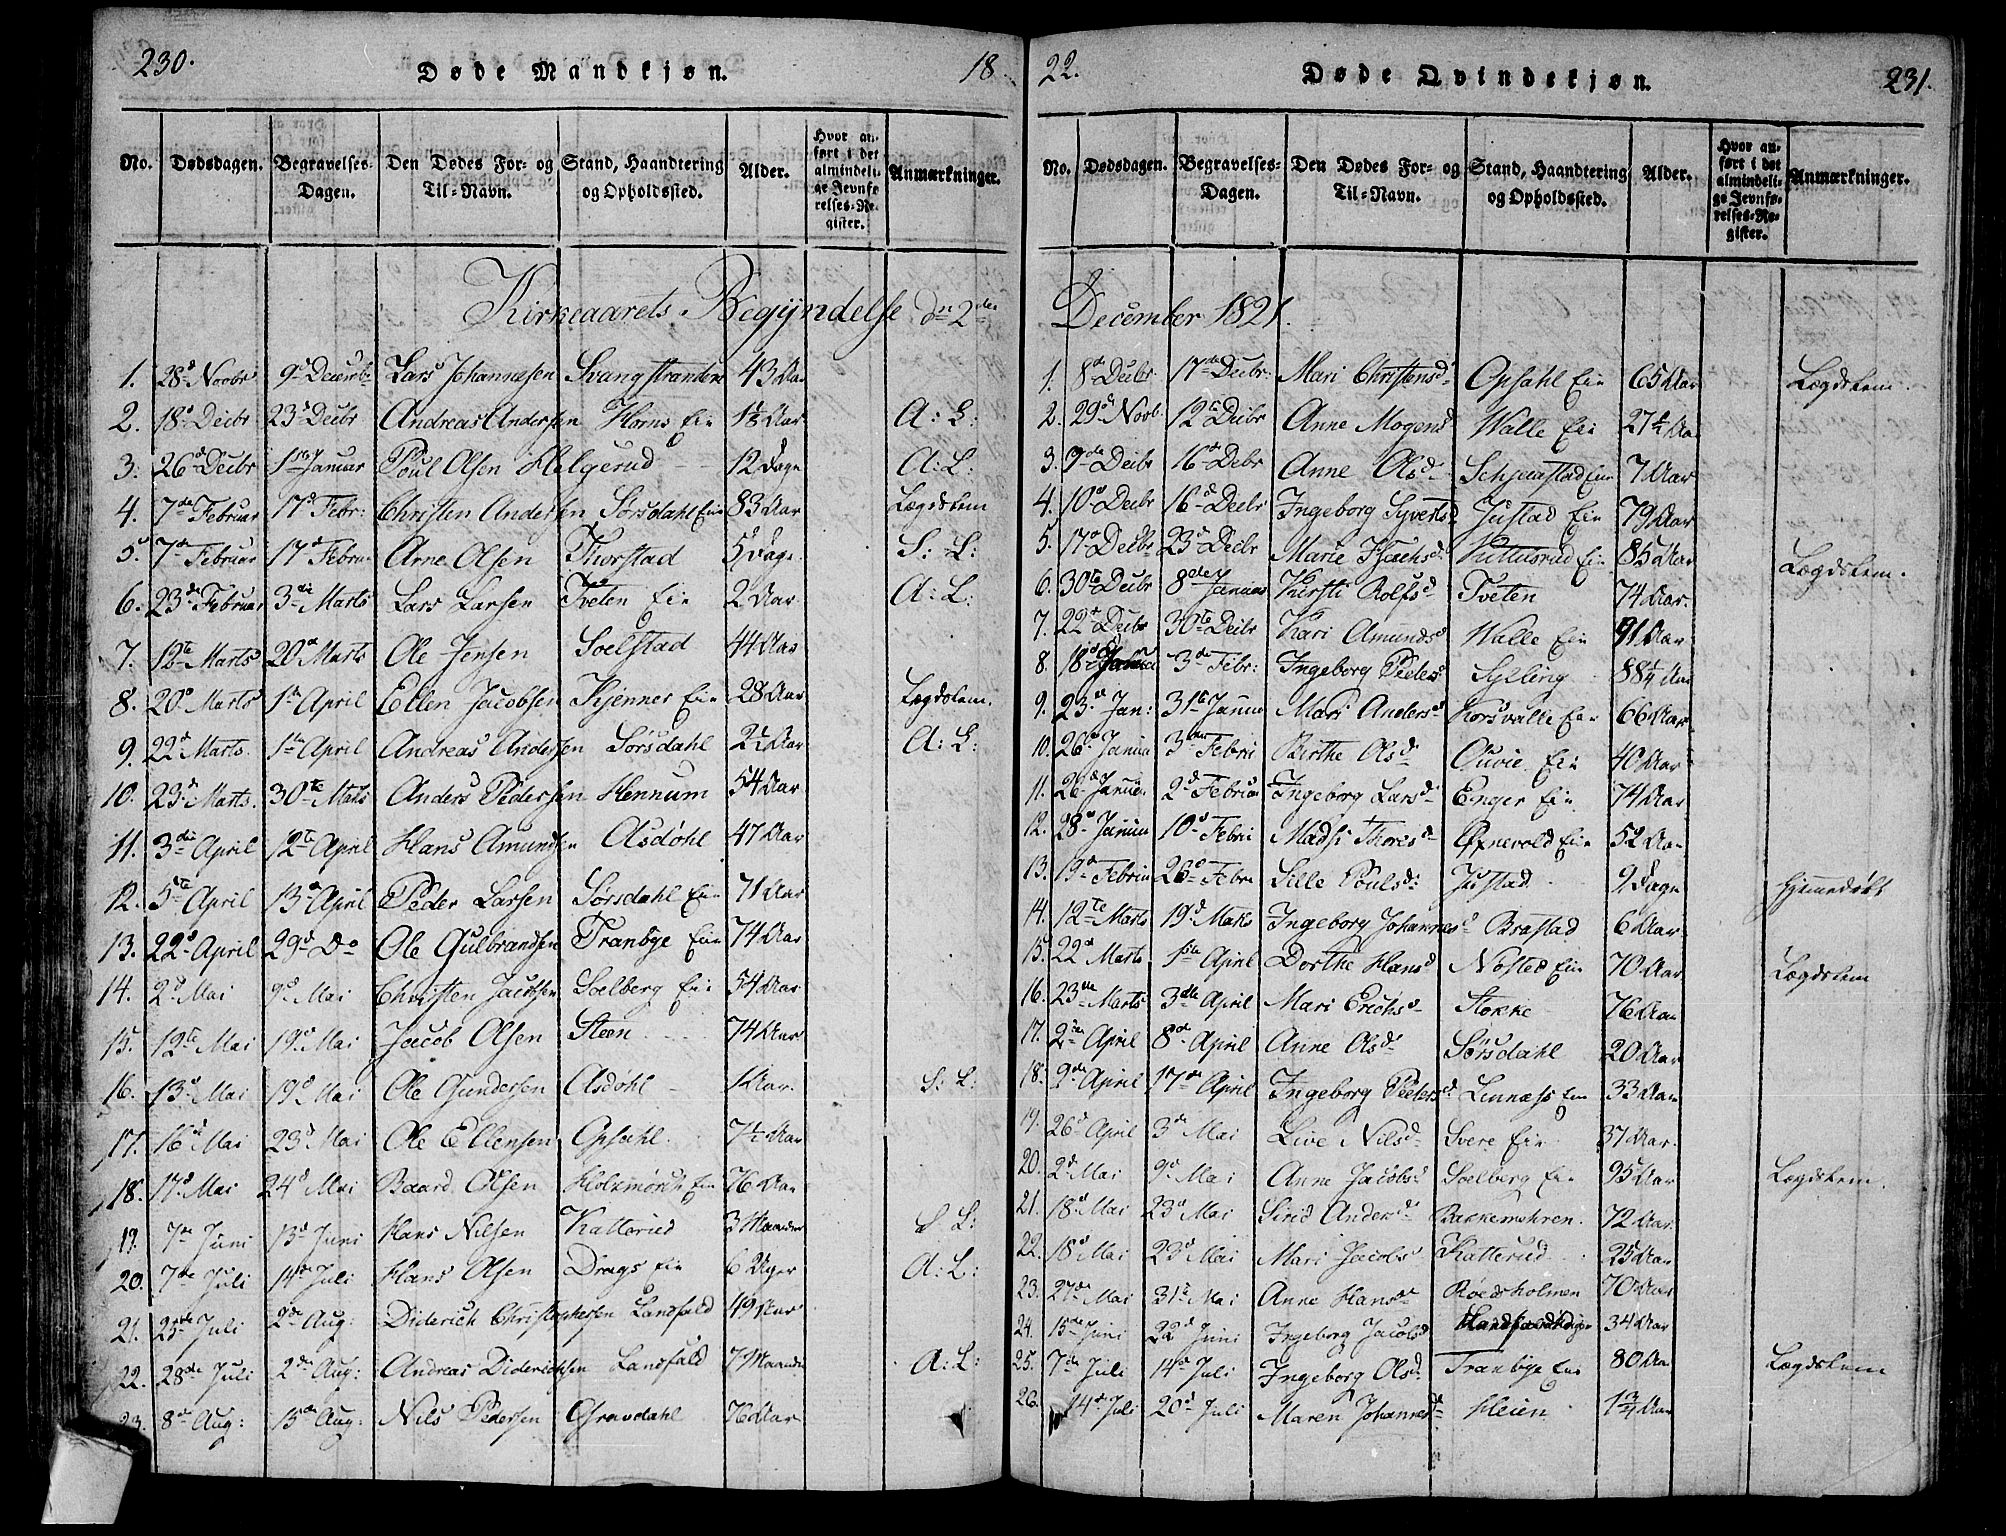 230.
Døde Mandkjøn.
18
No. Dødsdagen. Begravelses-Dagen. Den Dødes For- og Til-Navn. Stand, Haandtering og Opholdssted. Alder. Hvor anført i det almindelige Jevnførelses-Register. Anmærkninger.
Kirkeaarets Begyndelse dn 2den
1. 28d Novbr 9d Decembr Lars Johannesen Svangstranden 43 Aar
2. 18d Decbr 23d Decbr Andreas Andersen Horns Eie 1½ Aar A: L:
3. 26d Decbr 1ste Januar Poul Olsen Helgerud 12 Dage A: L:
4. 7de Februar 17d Febr: Christen Andersen Sørsdahl Eie 83 Aar Lægdslem
5. 7de Februar 17d Februar Arne Olsen Thorstad 5 Dage S: L:
6. 23de Februar 3die Marts Lars Larsen Tveten Eie 2 Aar A: L:
7. 12te Marts 20d Marts Ole Jensen Soelstad 44 Aar
8. 20d Marts 1ste April Ellen Jacobsen Kjenner Eie 28 Aar Lægdslem.
9. 22d Marts. 1ste April Andreas Andersen Sørsdahl 2½ Aar A: L:
10. 23d Marts. 30te Marts Anders Pedersen Hennum 54 Aar
11. 3die April 12te April Hans Amundsen Asdøhl 47 Aar
12. 5te April 13d April Peder Larsen Sørsdahl Eie 71 Aar
13. 22d April 29d Do Ole Gulbrandsen Tranbye Eie 74 Aar
14. 2d Mai 9d Mai Christen Jacobsen Soelberg Eie 54 Aar
15. 12te Mai 19d Mai Jacob Olsen Steen 74 Aar
16. 13d Mai 19d Mai Ole Gundersen Asdøhl 1 Aar. S: L:
17. 16d Mai 23d Mai Ole Ellensen Opsahl. 7½ Aar
18. 17d Mai 24d Mai Baard Olsen Eie 76 Aar
19. 7de Juni 13d Juni Hans Nilsen Katterud 3 Maaneder S L:
20. 7de Juli 14de Juli Hans Olsen Drags Eie 6 Uger A: L:
21. 25de Juli 2de Aug: Diderich Christophersen Landfald 49 Aar
22. 28de Juli 2de Aug: Andreas Diderichsen Landfald 7 Maaneder A: L:
23. 8de Aug: 15de Aug: Nils Pedersen Gravdahl 76 Aar
22.
Døde Qvindekjøn.
231.
No. Dødsdagen. Begravelses-Dagen. Den Dødes For- og Til-Navn. Stand, Haandtering og Opholdssted. Alder. Hvor anført i det almindelige Jevnførelses-Register. Anmærkninger.
December 1821.
1. 8de Decbr 17de Decbr: Mari Christensd Opsahl Eie 65 Aar Lægdslem.
2. 29d Novb. 12te Decbr Anne Mogensd Walle Eie Aar
3. 7de Decbr 16d Debr Anne Olsd Eie 7 Aar
4. 10d Decbr 16d Decbr Ingeborg Syvertsd Justad Eie 79 Aar
5. 17d Decbr 23d Decbr Marie Eie 85 Aar Lægdslem.
6. 30te Decbr 8de Januar Kirsti Rolfsd Tveten 74 Aar.
7. 22d Decbr 30te Decbr Kari Amundsd Walle Eie 91 Aar
8. 18d Januar 3de Febr: Ingeborg Peders Sylling Aar
9. 23d Jan: 31te Januar Mari Andersd Korsvalle Eie 66 Aar
10. 26d Januar 3die Febru Birthe Olsd Ouvie Eie 40 Aar
11. 26d Januar 2d Februar Ingeborg Larsd Enger Eie 74 Aar
12. 28d Januar 10d Febru Madsi Thoresd Eie 52 Aar
13. 19d Februar 26d Febru Sille Poulsd Justad 9 Dage Hjemmedøbt
14. 12te Marts 19d Marts Ingeborg Johannesd Brastad 6 Aar
15. 22d Marts 1ste April Dorthe Hansd Nøsted Eie 70 Aar Lægdslem
16. 23de Marts 3die April Mari Erichsd Stokke 76 Aar
17. 2den April 8de April Anne Olsd Sørsdahl 20 Aar
18. 9de April 17de April Ingeborg Pedersd Linnæs Eie 33 Aar
19. 26d April 3de Mai Live Nilsd Svere Eie 37 Aar.
20. 2d Mai 9d Mai Anne Jacobsd Soelberg Eie 95 Aar Lægdslem.
21. 18d Mai 23d Mai Sirid Andersd Bakkemohren. 72 Aar
22. 18d Mai 23d Mai Mari Jacobsd Katterud 25 Aar
23. 27de Mai 31te Mai Anne Hansd Røedsholmen 70 Aar
24. 15de Juni 22d Juni Ingeborg Jacobsd 34 Aar
25. 7de Juli 14de Juli Ingeborg Olsd Tranbye Eie 80 Aar Lægdslem
26. 14d Juli 20d Juli Maren Johannesd Heien 1¾ Aar